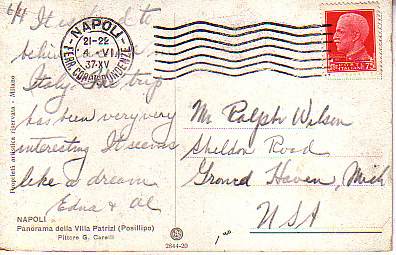 6/4 It is hard to
believe we are in
Italy. The trip
has been very very
interesting It seems
like a dream
Edna & Al
NAPOLI
21-22
4. VI
37·XV
FERR. CORRISPONDENZE
75
Mr Ralph Wilson
Sheldon Road
Grand Haven, Mich
USA
Proprietà artistica riservata - Milano
NAPOLI
Panorama della Villa Patrizi (Posillipo)
Pittore G. Carelli
2844-20